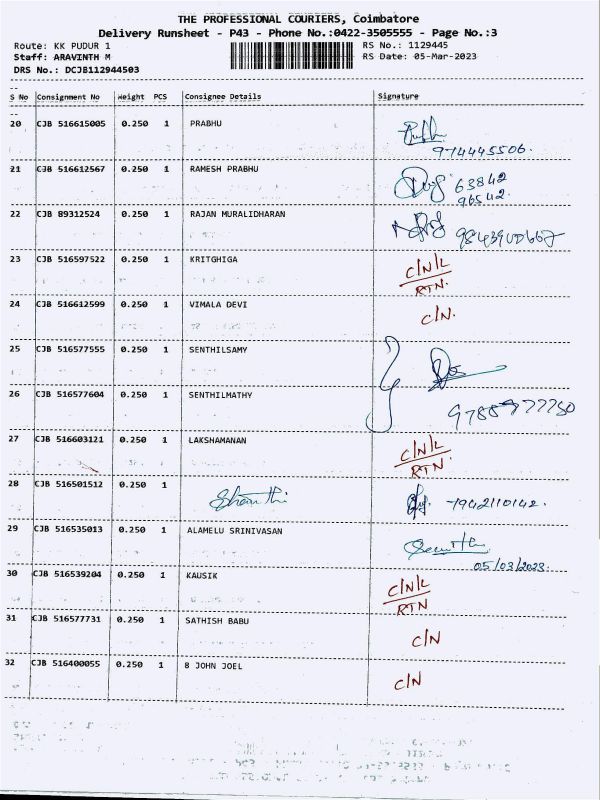 THE PROFESSIONAL COURIERS, Coimbatore
Delivery Runsheet - P43 - Phone No.:0422-3505555 - Page No.:3
Route: KK PUDUR 1 RS No.: 1129445
Staff: ARAVINTH M RS Date: 05-Mar-2023
DRS No.: DCJB112944503
S No Consignment No Weight PCS Consignee Details Signature
20 CJB 516615005 0.250 1 PRABHU
974445506.
21 CJB 516612567 0.250 1 RAMESH PRABHU 63842
96542.
22 CJB 89312524 0.250 1 RAJAN MURALIDHARAN
23 CJB 516597522 0.250 1 KRITGHIGA C/N/L
RTN.
24 CJB 516612599 0.250 1 VIMALA DEVI C/N.
25 CJB 516577555 0.250 1 SENTHILSAMY
26 CJB 516577604 0.250 1 SENTHILMATHY
27 CJB 516603121 0.250 1 LAKSHAMANAN C/N/L
RTN.
28 CJB 516501512 0.250 1 Shanthi 7942110142.
29 CJB 516535013 0.250 1 ALAMELU SRINIVASAN
05/03/2023.
30 CJB 516539204 0.250 1 KAUSIK C/N/L
RTN
31 CJB 516577731 0.250 1 SATHISH BABU C/N
32 CJB 516400055 0.250 1 8 JOHN JOEL C/N